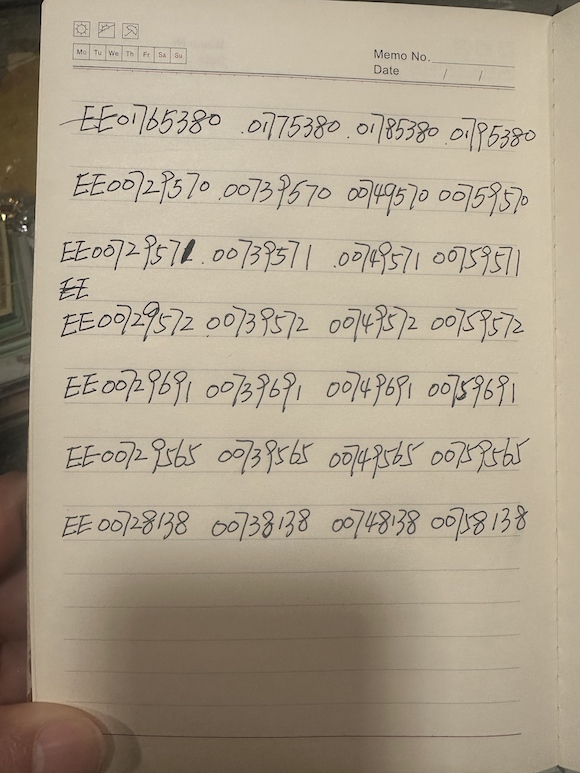 Mo Tu We Th Fr Sa Su
Memo No.
Date / /
EE01765380 .01775380 .01785380 .01795380
EE00729570 .00739570 00749570 00759570
EE00729571 .00739571 .00749571 00759571
EE
EE00729572 .00739572 00749572 00759572
EE00729691 00739691 00749691 00759691
EE00729565 00739565 00749565 00759565
EE00728138 00738138 00748138 00758138